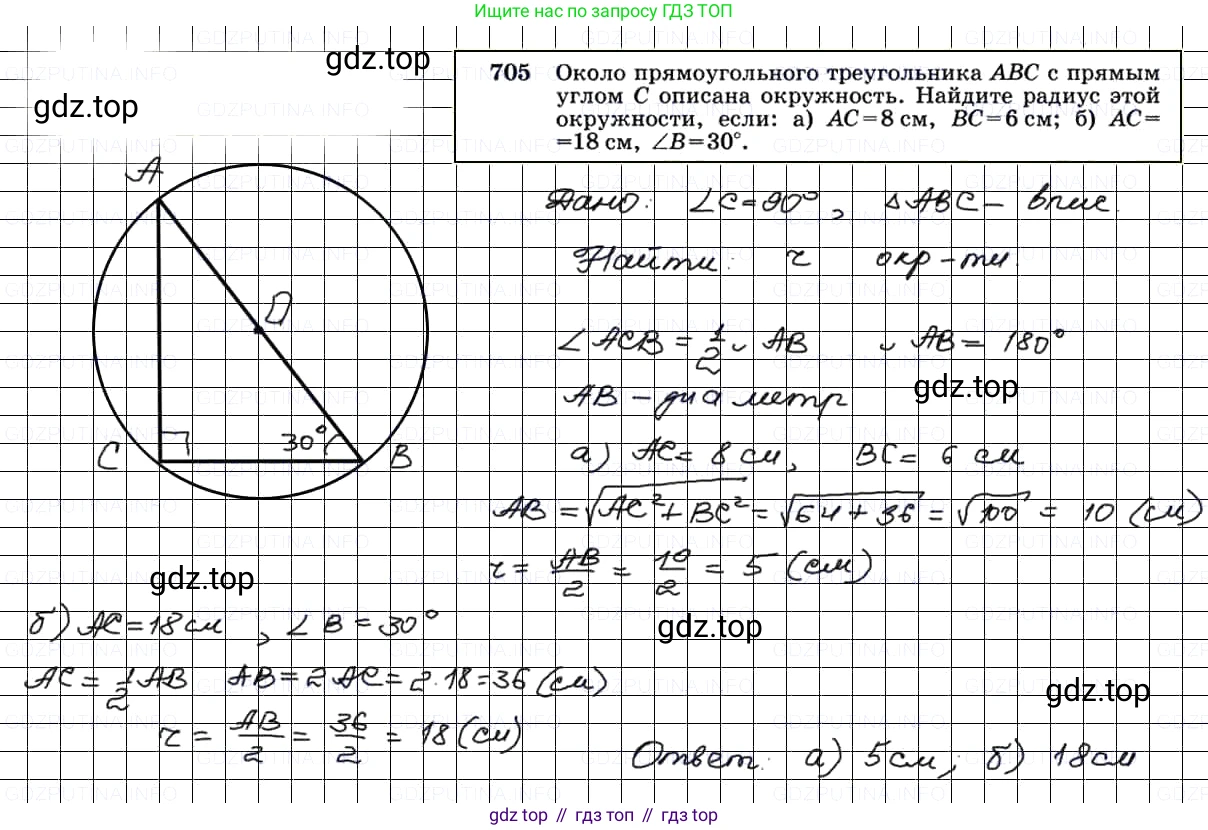 Ищите нас по запросу ГДЗ ТОП
gdz.top
gdz.top
705 Около прямоугольного треугольника ABC с прямым
углом C описана окружность. Найдите радиус этой
окружности, если: а) AC=8 см, BC=6 см; б) AC=
=18 см, ∠B=30°.
A
D
C
30°
B
Дано: ∠C=90°, △ABC – впис.
Найти: r окр-ти.
∠ACB = 1/2 ◡ AB ◡ AB = 180°
gdz.top
AB – диаметр
а) AC = 8 см, BC = 6 см
AB = √AC²+BC² = √64+36 = √100 = 10 (см)
r = AB/2 = 10/2 = 5 (см)
gdz.top
б) AC=18 см, ∠B=30°
gdz.top
AC = 1/2 AB AB = 2 AC = 2·18=36 (см)
gdz.top
r = AB/2 = 36/2 = 18 (см)
Ответ: а) 5см; б) 18см
gdz top // гдз топ // gdz top